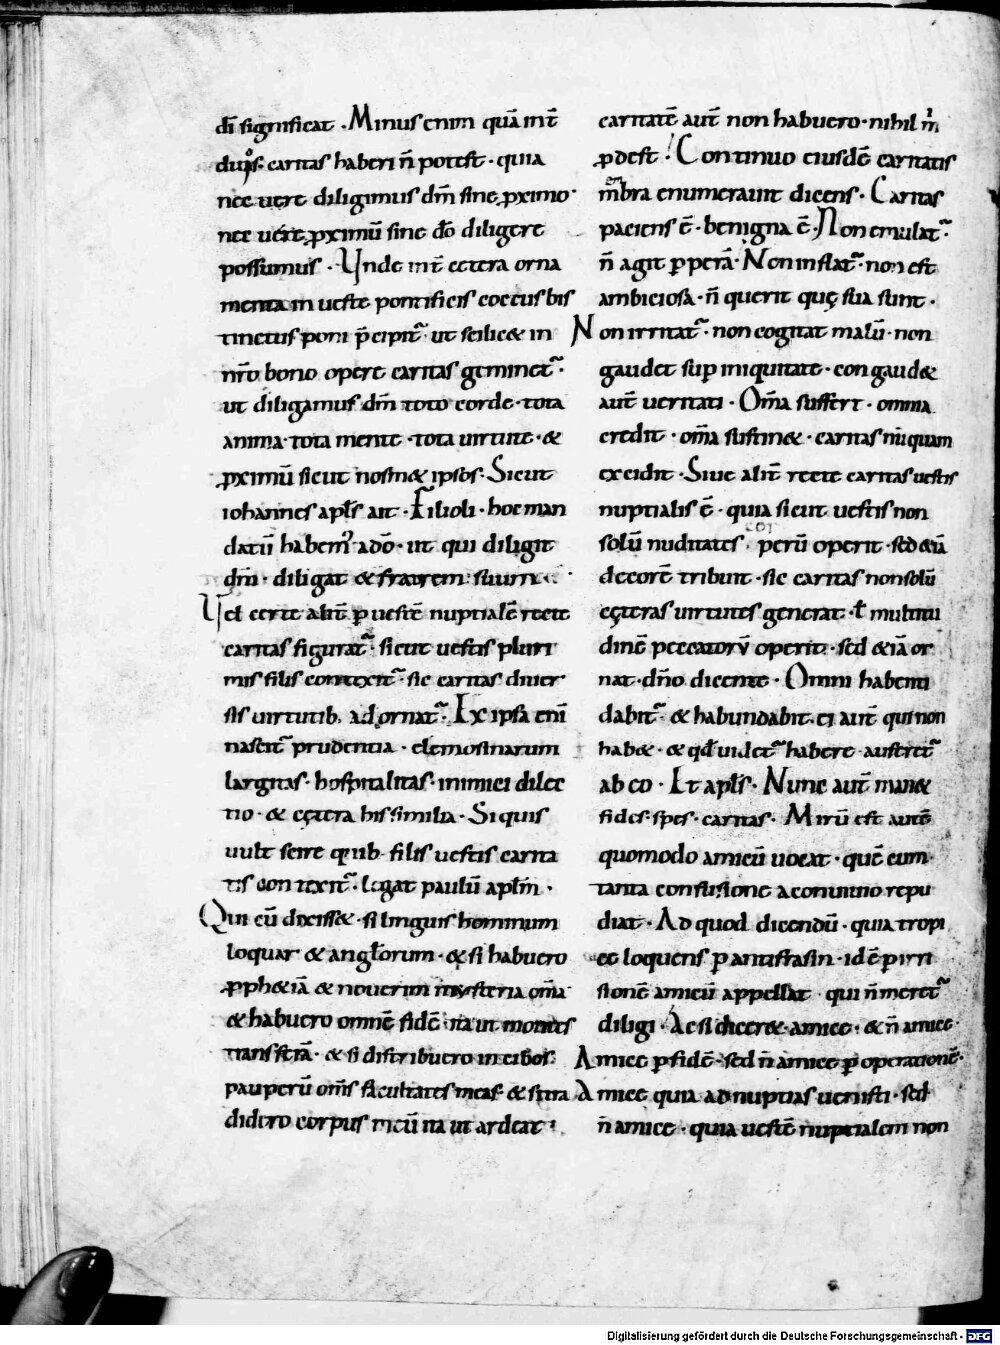 dī significat . Minus enim quā int̄
duos . caritas haberi n̄ potest . quia
nec uere diligimus dm̄ sine ꝓximo .
nec uere ꝓximū sine dō diligere
possumus . Unde int̄ cetera orna
menta in ueste pontificis coccus bis
tinctus poni p̄cipit᷑ . ut scilic& in
nr̄o bono opere caritas geminet᷑ .
ut diligamus dm̄ toto corde . tota
anima . tota mente . tota uirtute . &
ꝓximū sicut nosm& ipsos . Sicut
iohannes apl̄s ait . Filioli . hoc man
datū habem᷒ a dō . ut qui diligit
dm̄ . diligat & fratrem suum .
Uel certe alit̄ ꝑ uestē nuptialē recte
caritas figurat᷑ . sicut uestis pluri
mis filis contexit᷑ . sic caritas diuer
sis uirtutib. adornat᷑ . Ex ipsa enī
nascit᷑ prudentia . elemosinarum
largitas . hospitalitas . inimici dilec
tio . & cętera his similia . Si quis
uult scire quib. filis uestis carita
tis contexit᷑ . legat paulū apl̄m .
Qui cū dixiss& . si linguis hominum
loquar & angl̄orum . & si habuero
ꝓph&iā & nouerim mysteria om̄ia
& habuero omnē fidē . ita ut montes
transferā . & si distribuero in cibos
pauperū om̄s facultates meas . & si tra
didero corpus meū ita ut ardeat .
caritatē aut̄ non habuero . nihil m̄
ꝓdest . Continuo eiusdē caritatis
mēbra enumerauit dicens . Caritas
paciens ē . benigna ē . Non emulat᷑ .
n̄ agit ꝑperā . Non inflat᷑ . non est
ambiciosa . n̄ querit quę sua sunt .
Non irritat᷑ . non cogitat malū . non
gaudet sup iniquitate . congaud&
aut̄ ueritati . Om̄a suffert . omnia
credit . om̄a sustin& . caritas nūquam
excidit . Siue alit̄ recte caritas uestis
nuptialis ē . quia sicut uestis non
solū nuditates corperū operit . sed &iā
decorē tribuit . sic caritas non solū
cęteras uirtutes generat . ł multitu
dinē peccatorū operit . sed &iā or
nat . dn̄o dicente . Omni habenti
dabit᷑ . & habundabit. ei aut̄ qui non
hab& . & qd̄ uidet᷑ habere auferet᷑
ab eo . Et apl̄s . Nunc aut̄ man&
fides . spes . caritas . Mirū est autē
quomodo amicū uocat . quē cum
tanta confusione a conuiuio repu
diat . Ad quod dicendū . quia tropi
ce loquens ꝑ antifrasin . idē ꝑ irri
sionē amicū appellat qui n̄ meret᷑
diligi . Ac si dicer& . amice . & n̄ amice .
Amice ꝑ fidē . sed n̄ amice ꝑ operationē .
Amice quia ad nuptias uenisti . sed
n̄ amice . quia uestē nuptialem non
Digitalisierung gefördert durch die Deutsche Forschungsgemeinschaft - DFG